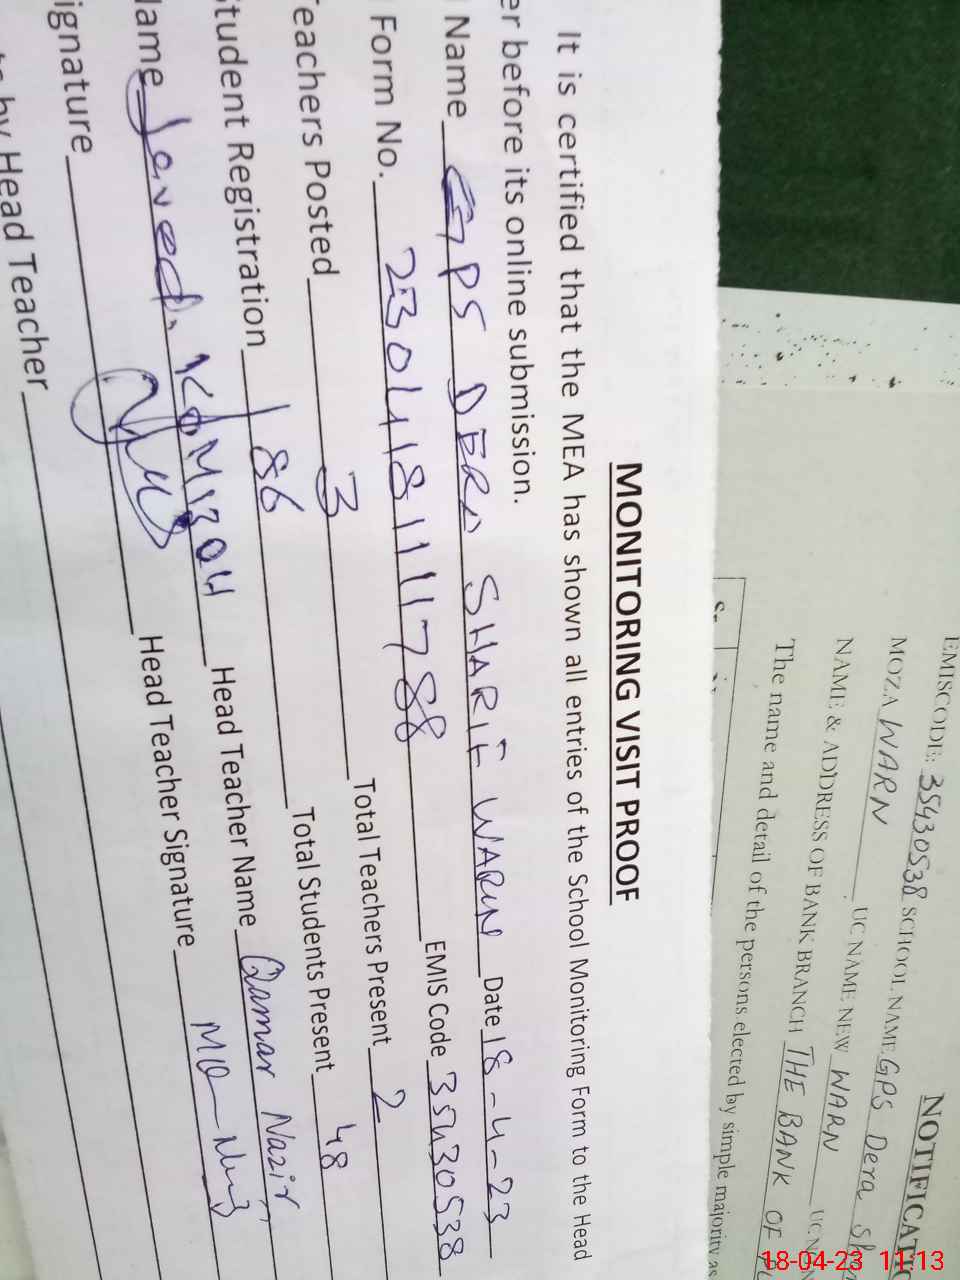 MONITORING VISIT PROOF
It is certified that the MEA has shown all entries of the School Monitoring Form to the Head
er before its online submission.
Name GPS DERA SHARIF WARN Date 18-4-23
Form No. 230418111788 EMIS Code 35430538
Teachers Posted 3 Total Teachers Present 2
Student Registration 86 Total Students Present 48
Name Javed. Head Teacher Name Qamar Nazir
ignature Head Teacher Signature
ts by Head Teacher
NOTIFICATIO
EMISCODE: 35430538 SCHOOL NAME GPS Dera Sha
MOZA WARN UC NAME NEW WARN UC N
NAME & ADDRESS OF BANK BRANCH THE BANK OF PU
The name and detail of the persons elected by simple majority as
18-04-23 11:13